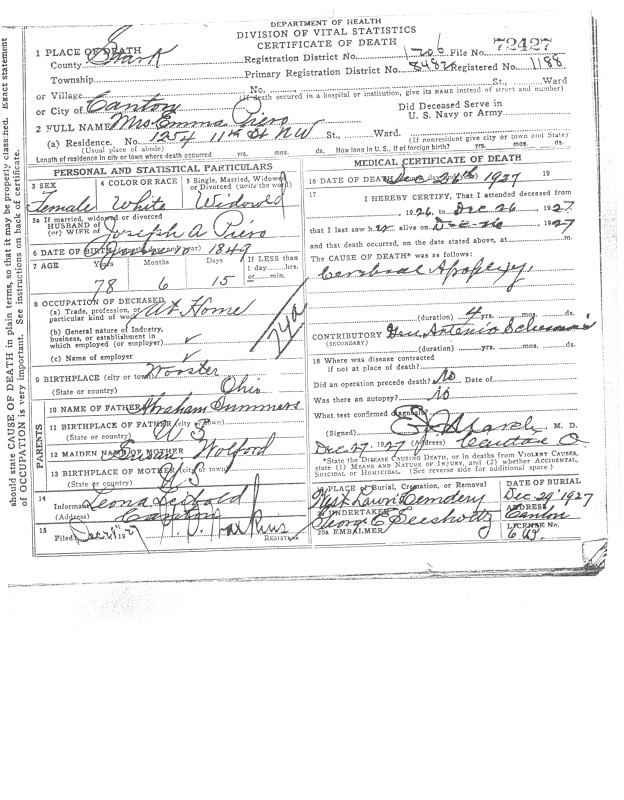 should state CAUSE OF DEATH in plain terms, so that it may be properly classified. Exact statement
of OCCUPATION is very important. See instructions on back of certificate.
DEPARTMENT OF HEALTH
DIVISION OF VITAL STATISTICS
CERTIFICATE OF DEATH
1 PLACE OF DEATH
County Stark
Registration District No. 1206 File No. 72427
Township
Primary Registration District No. 8482 Registered No. 1188
or Village
No. St., Ward
(If death occured in a hospital or institution, give its NAME instead of street and number)
or City of Canton
Did Deceased Serve in
U. S. Navy or Army
2 FULL NAME Mrs Emma Piero
(a) Residence. No. 1254 11th St NW St., Ward.
(Usual place of abode) (If nonresident give city or town and State)
Length of residence in city or town where death occurred yrs. mos. ds. How long in U. S., if of foreign birth? yrs. mos. ds.
PERSONAL AND STATISTICAL PARTICULARS
3 SEX 4 COLOR OR RACE 5 Single, Married, Widowed
or Divorced (write the word)
Female White Widowed
5a If married, widowed or divorced
HUSBAND of
(or) WIFE of Joseph A Piero
6 DATE OF BIRTH 1849
7 AGE Years Months Days If LESS than
1 day......hrs.
or......min.
78 6 15
8 OCCUPATION OF DECEASED
(a) Trade, profession, or
particular kind of work At Home
(b) General nature of Industry,
business, or establishment in
which employed (or employer)
(c) Name of employer
74a
9 BIRTHPLACE (city or town) Wooster
(State or country) Ohio
PARENTS
10 NAME OF FATHER Abraham Summers
11 BIRTHPLACE OF FATHER (city or town)
(State or country) U S
12 MAIDEN NAME OF MOTHER Susan Wolford
13 BIRTHPLACE OF MOTHER (city or town)
(State or country) U S
14
Informant Leona Leibold
(Address) Canton
15
Filed 1927
REGISTRAR
MEDICAL CERTIFICATE OF DEATH
16 DATE OF DEATH Dec 26th 1927 19
17
I HEREBY CERTIFY, That I attended deceased from
, 1926, to Dec 26, 1927
that I last saw her alive on Dec 26, 1927
and that death occurred, on the date stated above, at m.
The CAUSE OF DEATH* was as follows:
Cerebral Apoplexy,
(duration) 4 yrs. mos. ds.
CONTRIBUTORY Gen Arterio Sclerosis
(SECONDARY)
(duration) yrs. mos. ds.
18 Where was disease contracted
if not at place of death?
Did an operation precede death? no Date of
Was there an autopsy? no
What test confirmed diagnosis?
(Signed) M. D.
Dec 27, 1927 (Address) Canton O.
*State the DISEASE CAUSING DEATH, or in deaths from VIOLENT CAUSES,
state (1) MEANS AND NATURE OF INJURY, and (2) whether ACCIDENTAL,
SUICIDAL or HOMICIDAL. (See reverse side for additional space.)
19 PLACE of Burial, Cremation, or Removal DATE OF BURIAL
West Lawn Cemetery Dec 29 1927
20 UNDERTAKER ADDRESS
George C Canton
20a EMBALMER LICENSE No.